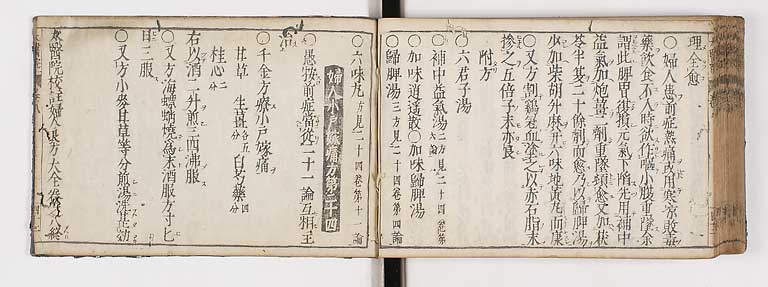 理全愈
○婦人患前症熱痛或用寒涼敗毒
藥飲食不入時欲作嘔小腹重墜余
謂此脾胃復損元氣下陷先用補中
益氣加炮薑二劑重墜頓愈又加茯
苓半夏二十餘劑而愈乃以歸脾湯
少加柴胡升麻并六味地黄丸而康
○又方割鷄冠血塗之以赤石脂末
摻之五倍子末亦良
附方
○六君子湯
○補中益氣湯二方見二十四卷第六論
○加味逍遥散○加味歸脾湯
○歸脾湯三方見二十四卷第四論
○六味丸方見二十四卷第十一論
婦人小戸嫁痛方第二十四
○愚按前症當從二十一論互相主
治
○千金方療小戸嫁痛
甘草 生薑各五分 白芍藥四分
桂心二分
右以酒二升煎三四沸服
○又方海螵蛸燒爲末酒服方寸匕
日三服
○又方小麥甘草等分煎湯洗甚効
太醫院校註婦人良方大全卷之八終